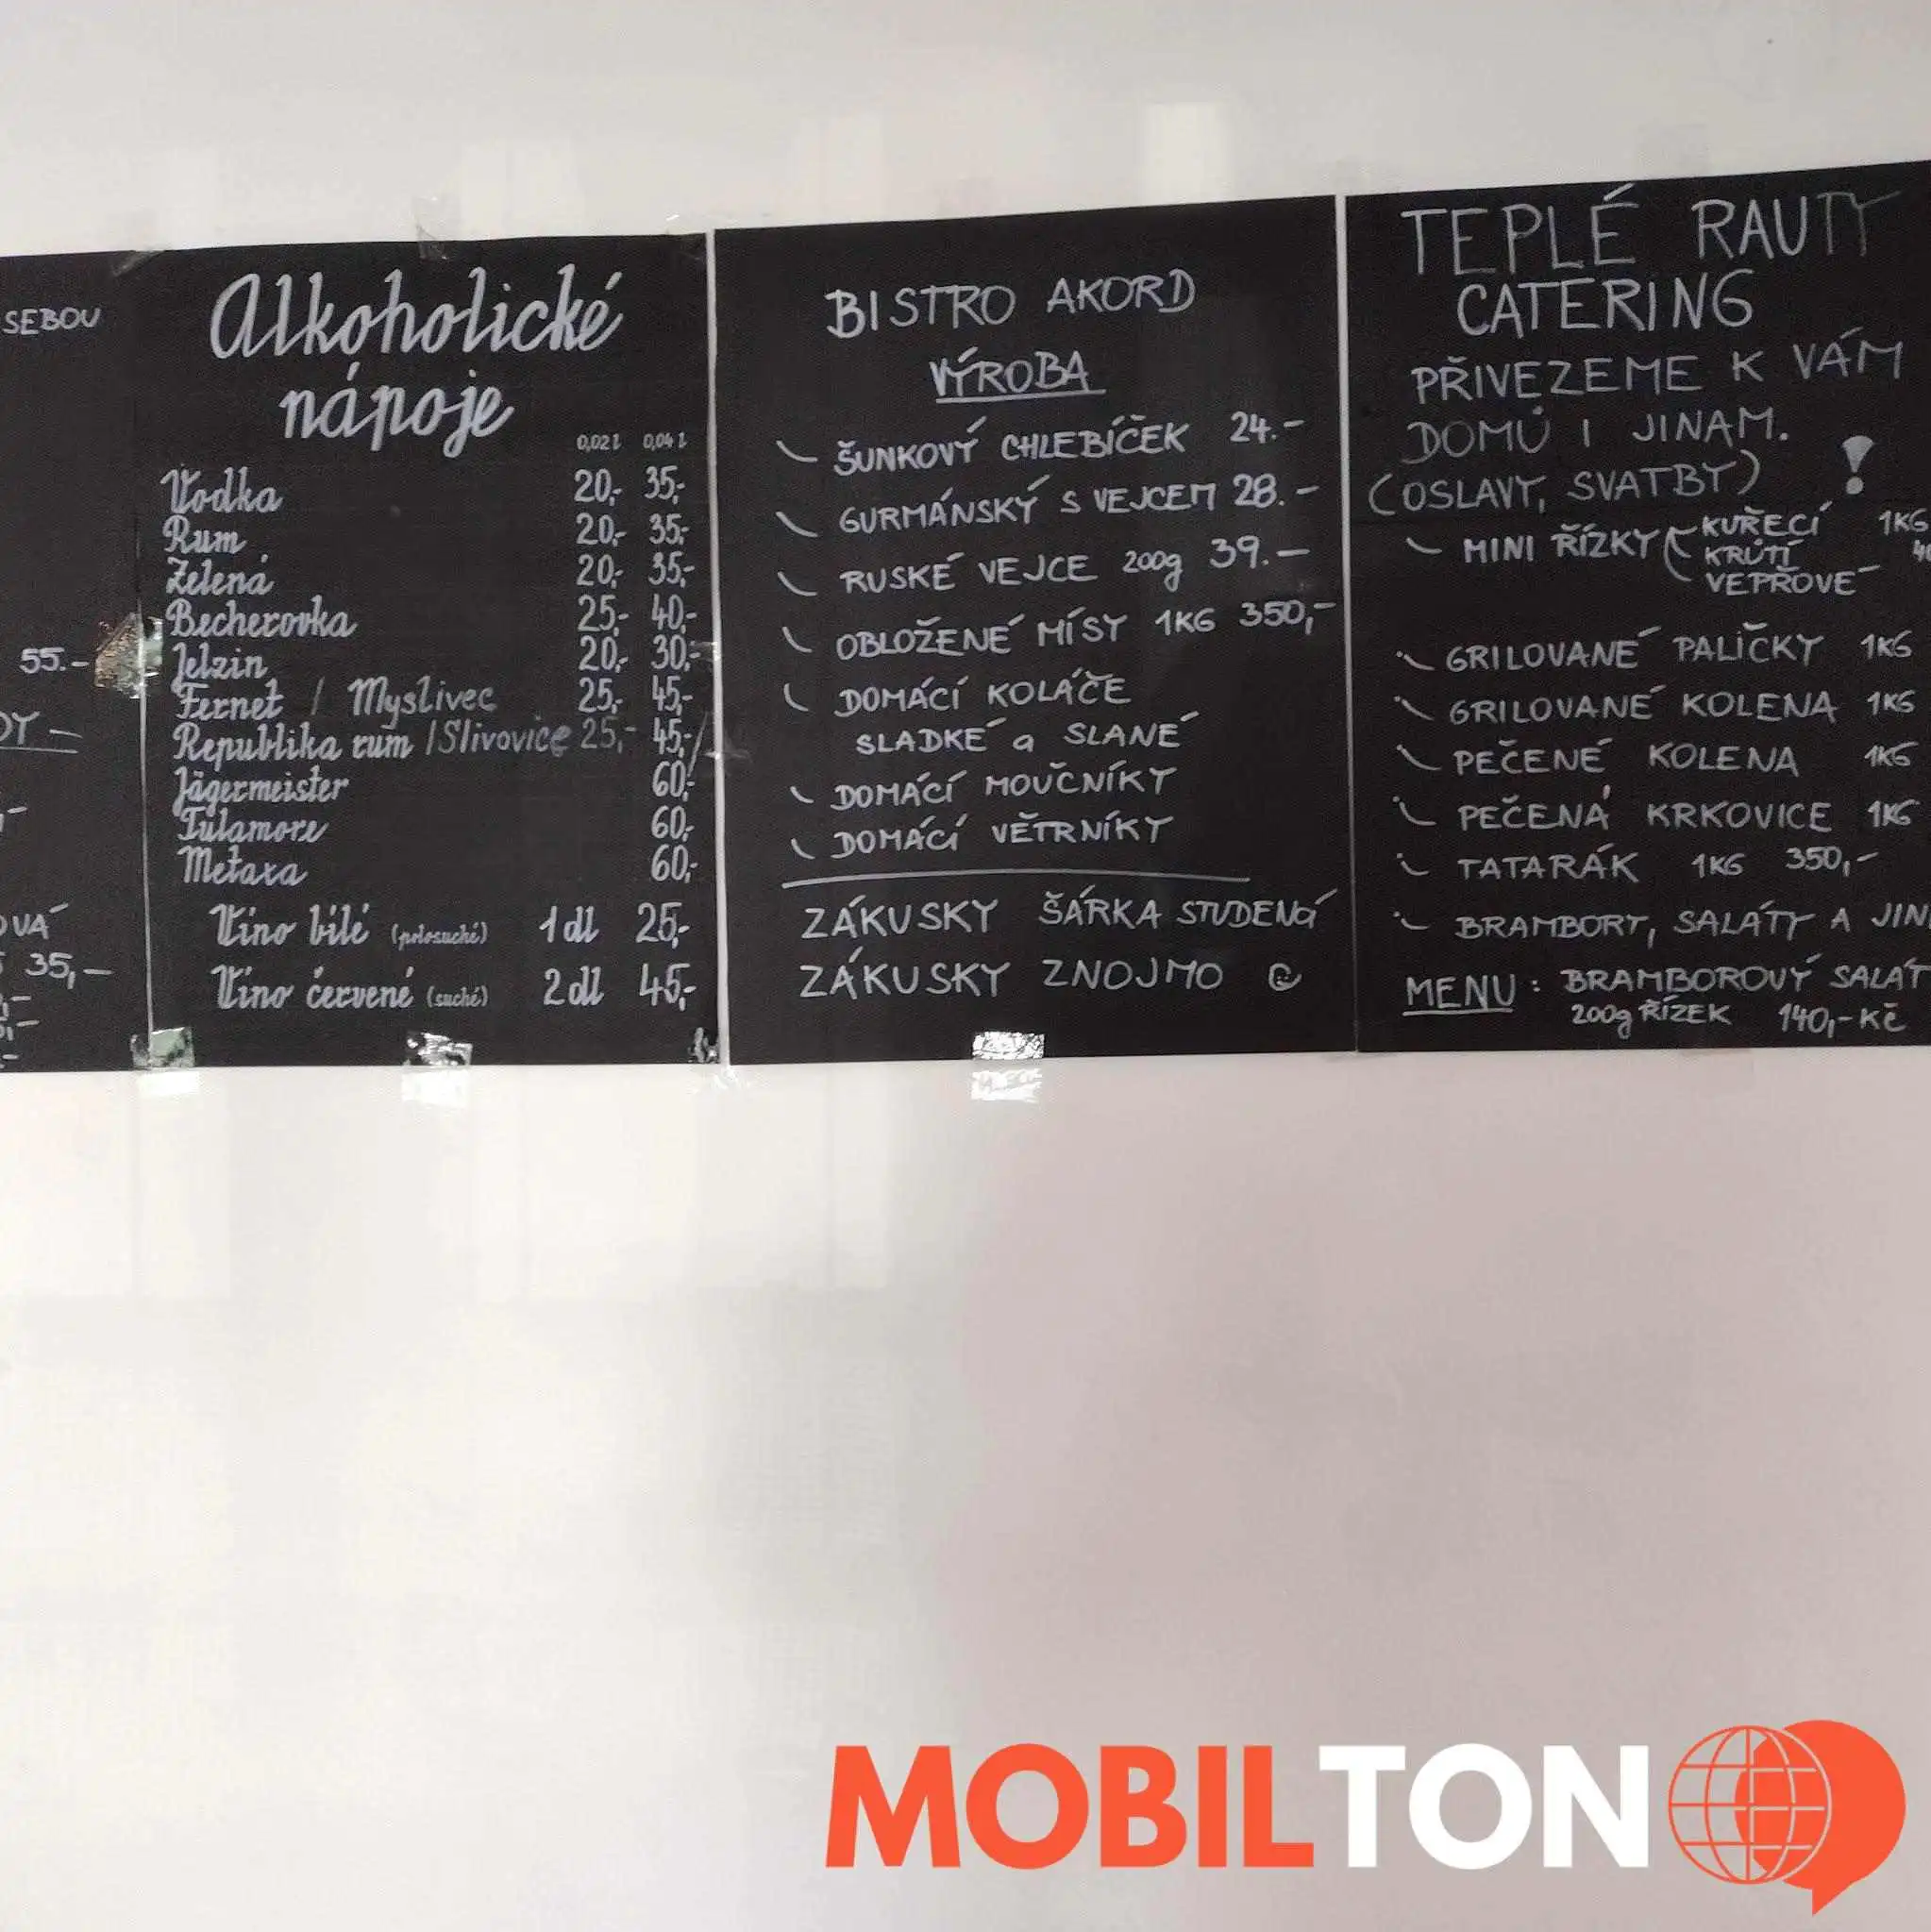 SEBOU
55.-
35,-
Alkoholické
nápoje
0,02 l 0,04 l
Vodka 20,- 35,-
Rum 20,- 35,-
Zelená 20,- 35,-
Becherovka 25,- 40,-
Jelzin 20,- 30,-
Fernet / Myslivec 25,- 45,-
Republika rum / Slivovice 25,- 45,-
Jägermeister 60,-
Tulamore 60,-
Metaxa 60,-
Víno bílé (polosuché) 1 dl 25,-
Víno červené (suché) 2 dl 45,-
BISTRO AKORD
VÝROBA
ŠUNKOVÝ CHLEBÍČEK 24.-
GURMÁNSKÝ S VEJCEM 28.-
RUSKÉ VEJCE 200g 39.-
OBLOŽENÉ MÍSY 1KG 350,-
DOMÁCÍ KOLÁČE
SLADKÉ a SLANÉ
DOMÁCÍ MOUČNÍKY
DOMÁCÍ VĚTRNÍKY
ZÁKUSKY ŠÁRKA STUDENá
ZÁKUSKY ZNOJMO
TEPLÉ RAUTY
CATERING
PŘIVEZEME K VÁM
DOMŮ I JINAM.
(OSLAVY, SVATBY) !
MINI ŘÍZKY KUŘECÍ 1KG
KRŮTÍ
VEPŘOVÉ
GRILOVANÉ PALIČKY 1KG
GRILOVANÉ KOLENA 1KG
PEČENÉ KOLENA 1KG
PEČENÁ KRKOVICE 1KG
TATARÁK 1KG 350,-
BRAMBORY, SALÁTY A JIN
MENU: BRAMBOROVÝ SALÁT
200g ŘÍZEK 140,-Kč
MOBILTON